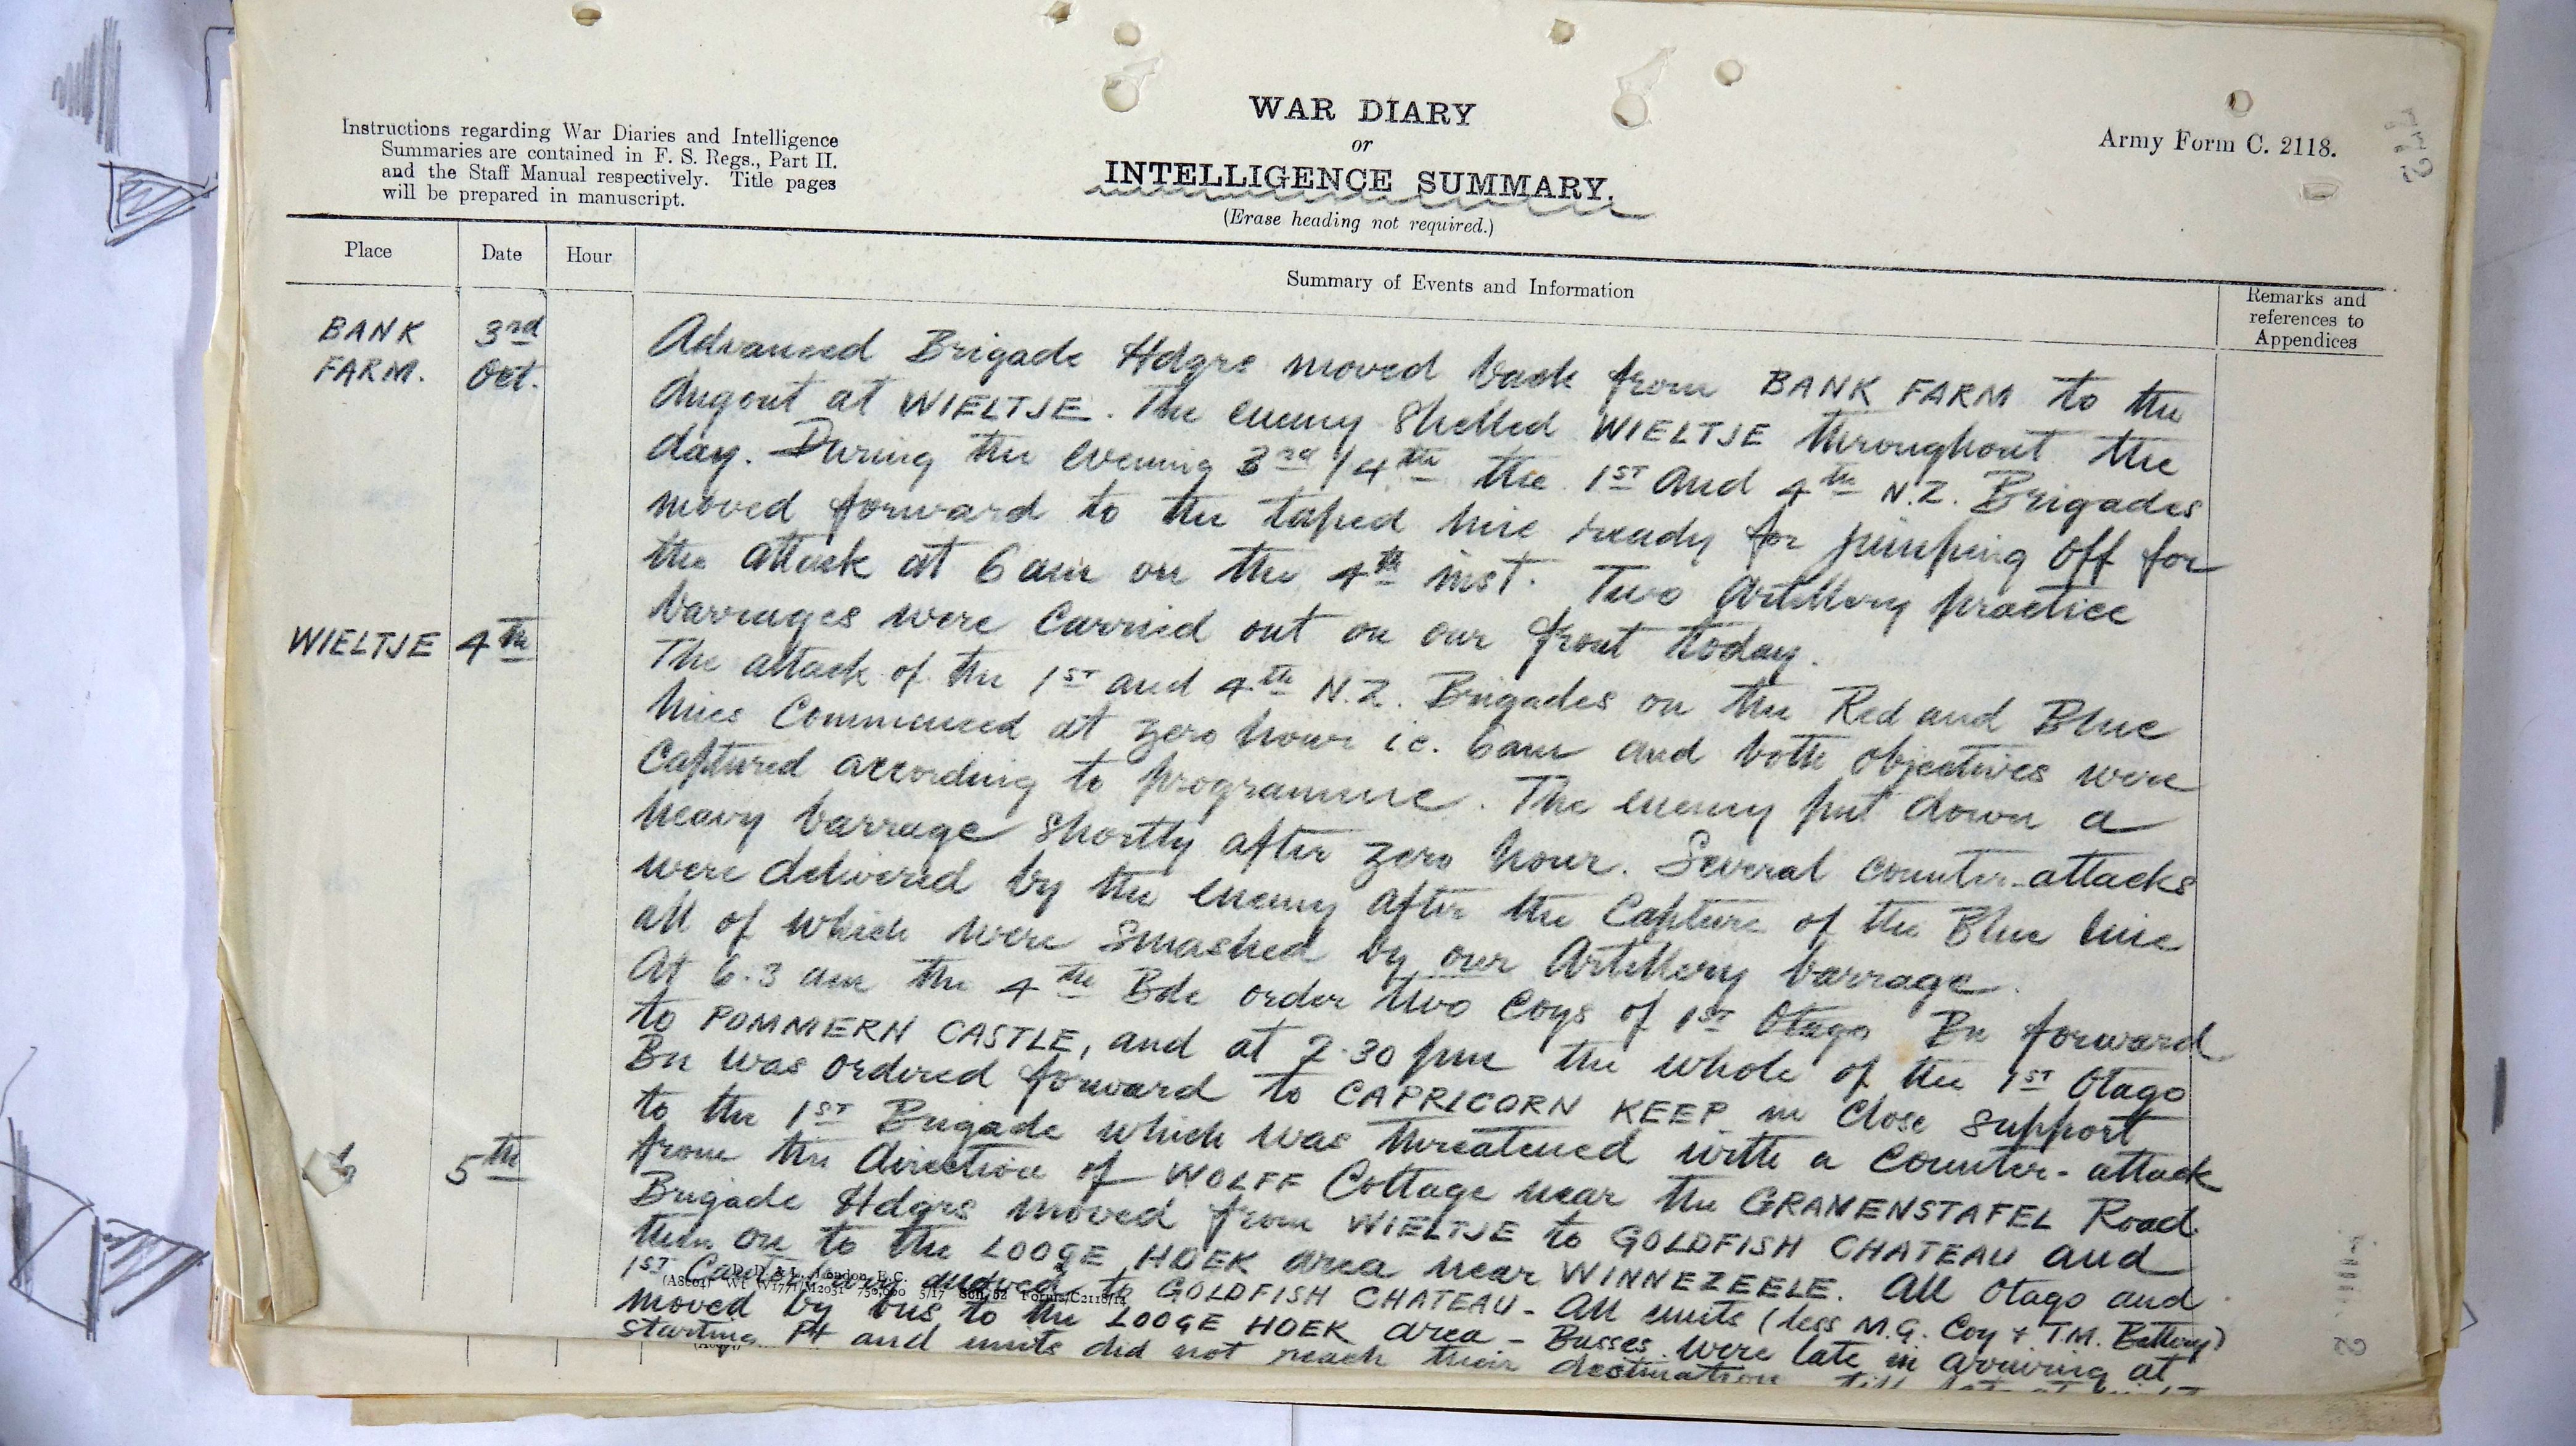 WAR DIARY
or
INTELLIGENCE SUMMARY.
(Erase heading not required.)
Instructions regarding War Diaries and Intelligence
Summaries are contained in F. S. Regs., Part II.
and the Staff Manual respectively. Title pages
will be prepared in manuscript.
Army Form C. 2118.
Place
Date
Hour
Summary of Events and Information
Remarks and
references to
Appendices
BANK
FARM.
3rd
Oct.
Advanced Brigade Hdqrs moved back from BANK FARM to the
dugout at WIELTJE. The enemy shelled WIELTJE throughout the
day. During the evening 3rd/4th the 1ST and 4th N.Z. Brigades
moved forward to the taped line ready for jumping off for
the attack at 6 am on the 4th inst. Two Artillery practice
barrages were carried out on our front today.
WIELTJE 4th
The attack of the 1ST and 4th N.Z. Brigades on the Red and Blue
lines commenced at zero hour i.e. 6am and both objectives were
captured according to programme. The enemy put down a
heavy barrage shortly after zero hour. Several counter-attacks
were delivered by the enemy after the capture of the Blue line
all of which were smashed by our Artillery barrage.
At 6.3 am the 4th Bde order two Coys of 1ST Otago Bn forward
to POMMERN CASTLE, and at 2.30 pm the whole of the 1ST Otago
Bn was ordered forward to CAPRICORN KEEP in close support
to the 1ST Brigade which was threatened with a counter-attack
from the direction of WOLFF Cottage near the GRAVENSTAFEL Road.
5th
Brigade Hdqrs moved from WIELTJE to GOLDFISH CHATEAU and
then on to the LOOGE HOEK area near WINNEZEELE. All Otago and
1ST moved to GOLDFISH CHATEAU - All units (less M.G. Coy & T.M. Battery)
moved by bus to the LOOGE HOEK area - Busses were late in arriving at
starting Pt and units did not reach their destination till
D. D. & L., London, E.C.
(A8004) Wt W1771/M2031 750,000 5/17 Sch. 52 Forms/C2118/14